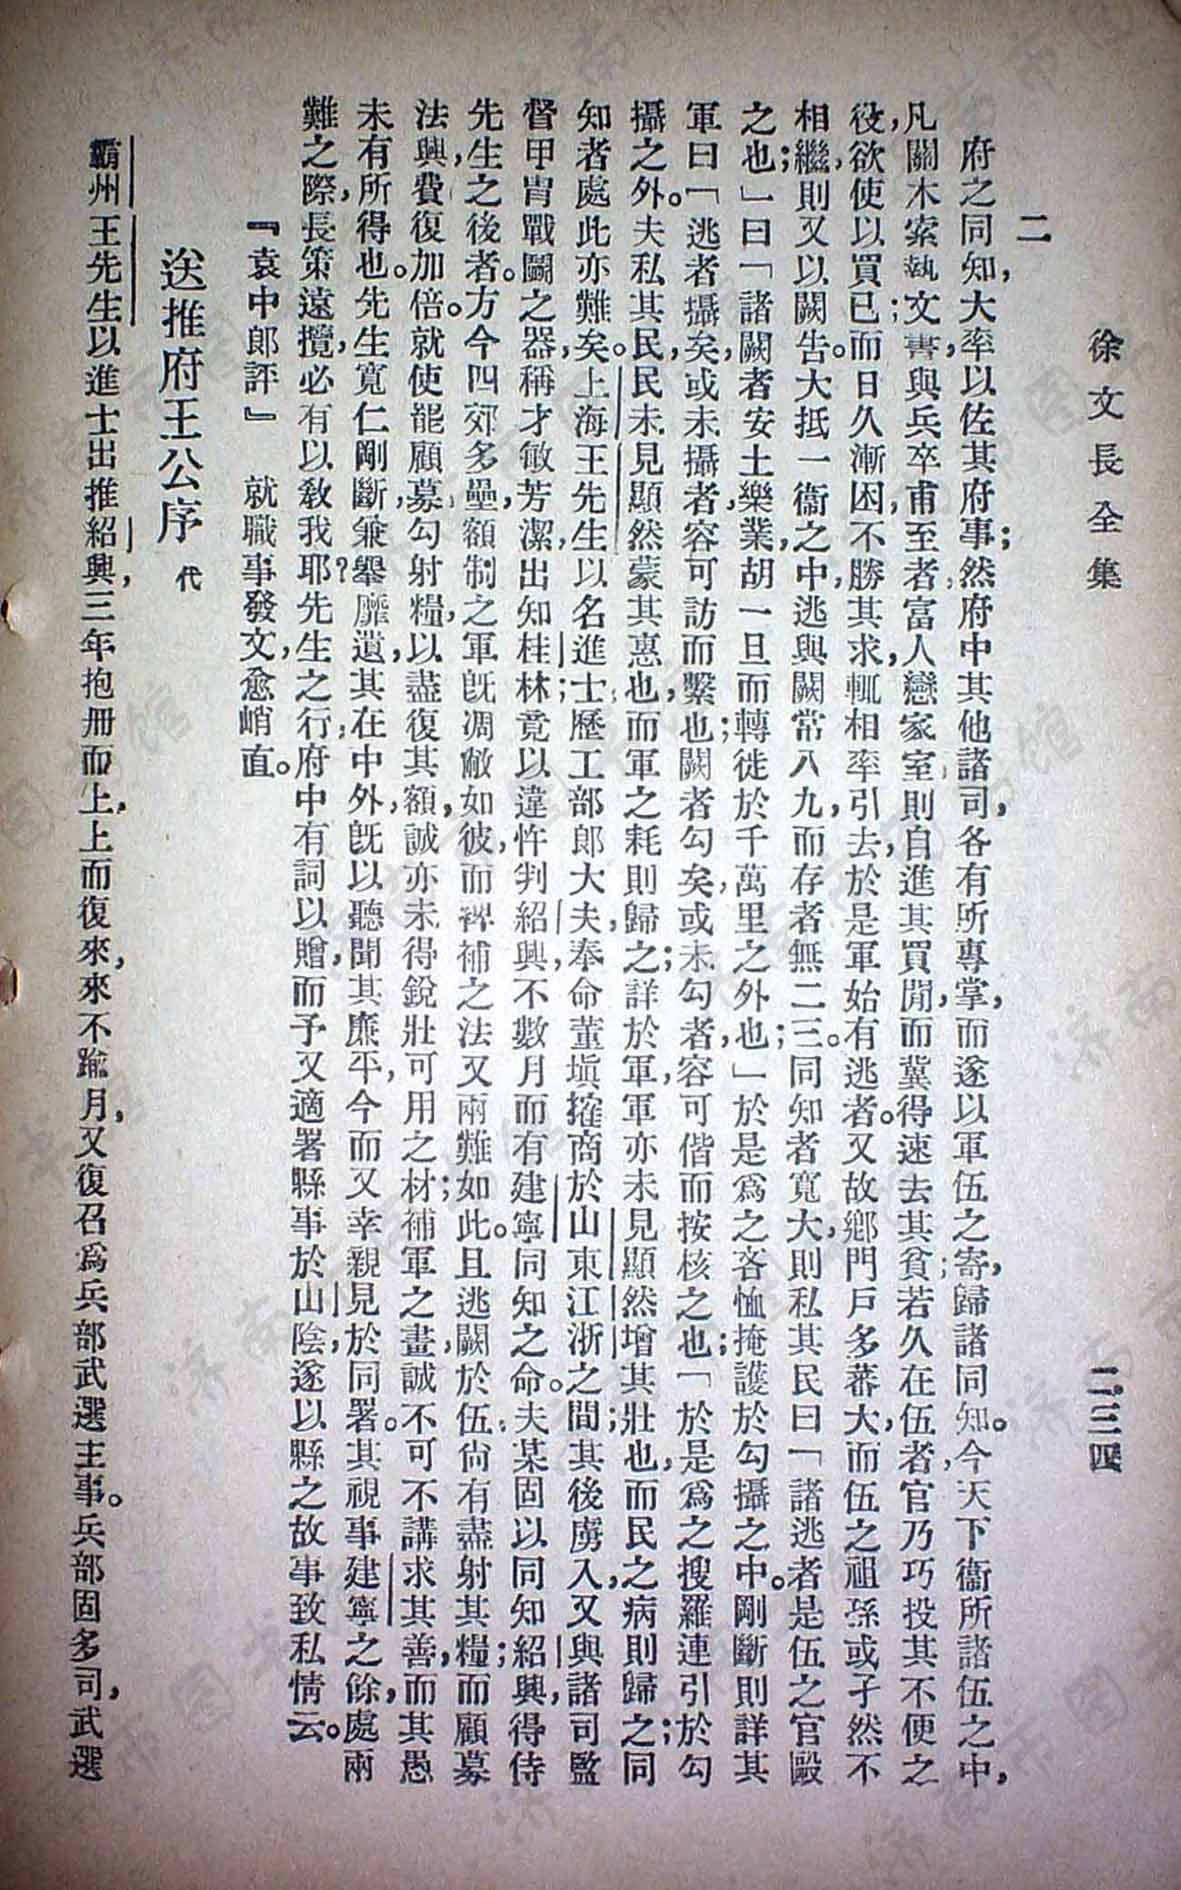 徐文長全集
二三四
二
府之同知，大率以佐其府事；然府中其他諸司，各有所專掌，而遂以軍伍之寄，歸諸同知。今天下衞所諸伍之中，
凡關木索執文書，與兵卒甫至者，富人戀家室，則自進其買閒，而冀得速去；其貧若久在伍者，官乃巧投其不便之
役，欲使以買已；而日久漸困，不勝其求，輒相率引去，於是軍始有逃者。又故鄉門戶多蕃大，而伍之祖孫或孑然不
相繼，則又以闕告。大抵一衞之中，逃與闕常八九，而存者無二三。同知者寬大，則私其民曰「諸逃者是伍之官毆
之也；」曰「諸闕者安土樂業，胡一旦而轉徙於千萬里之外也；」於是爲之吝恤掩護於勾攝之中。剛斷則詳其
軍曰「逃者攝矣，或未攝者，容可訪而繫也；闕者勾矣，或未勾者，容可偕而按核之也；「於是爲之搜羅連引於勾
攝之外。夫私其民，民未見顯然蒙其惠也，而軍之耗則歸之；詳於軍，軍亦未見顯然增其壯也，而民之病則歸之；同
知者處此亦難矣。上海王先生以名進士，歷工部郎大夫，奉命董塡搉商於山東江浙之間；其後虜入，又與諸司監
督甲冑戰鬭之器，稱才敏芳潔，出知桂林；竟以違忤判紹興，不數月而有建寧同知之命。夫某固以同知紹興，得侍
先生之後者。方今四郊多壘，額制之軍旣凋敝如彼，而裨補之法又兩難如此。且逃闕於伍，尙有盡射其糧；而顧募
法興，費復加倍。就使罷顧募，勾射糧，以盡復其額，誠亦未得銳壯可用之材；補軍之畫，誠不可不講求其善，而其愚
未有所得也。先生寬仁剛斷，兼舉靡遺，其在中外，旣以聽聞其廉平，今而又幸親見於同署。其視事建寧之餘，處兩
難之際，長策遠攬，必有以敎我耶？先生之行，府中有詞以贈，而予又適署縣事於山陰，遂以縣之故事致私情云。
『袁中郎評』　就職事發文，愈峭直。
送推府王公序　代
霸州王先生以進士出推紹興，三年抱册而上，上而復來，來不踰月，又復召爲兵部武選主事。兵部固多司，武選